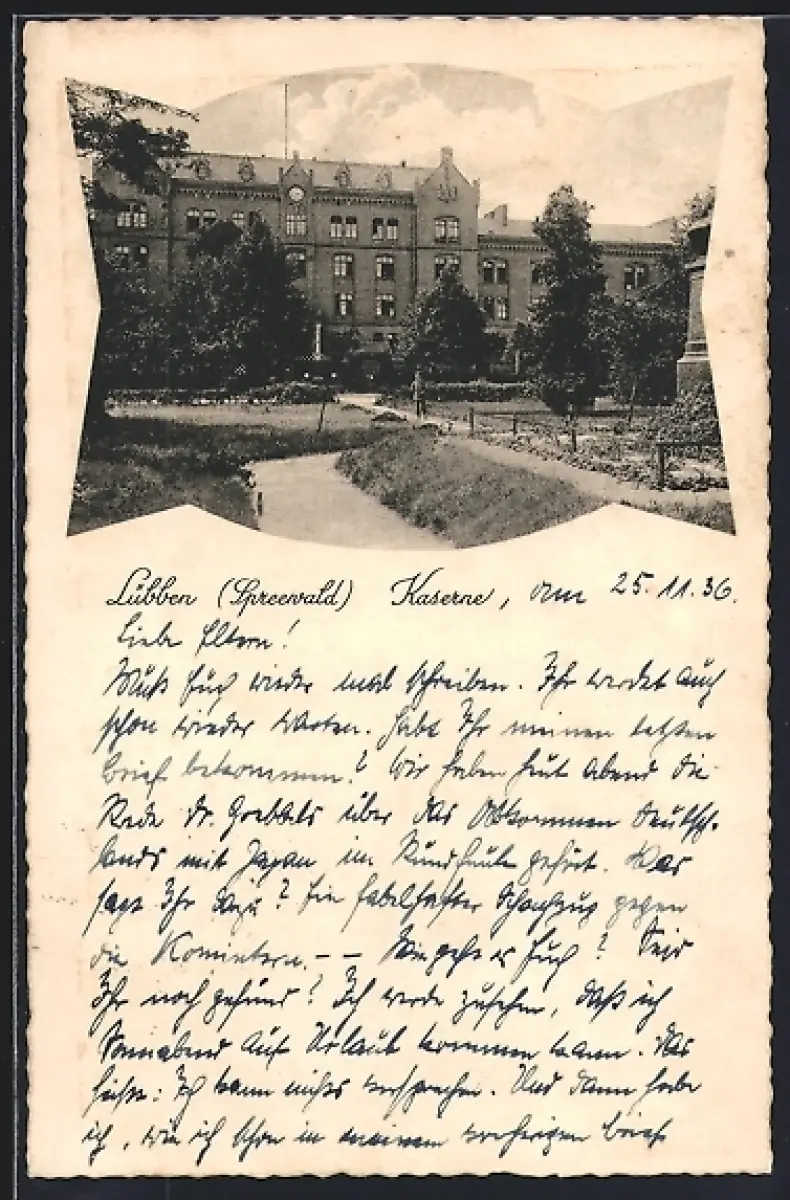 Lübben (Spreewald) Kaserne, am 25. 11. 36.
Liebe Eltern!
Muß Euch wieder mal schreiben. Ihr werdet auch
schon wieder warten. Habt Ihr meinen letzten
Brief bekommen? Wir haben heut Abend die
Rede Dr. Goebbels über das Abkommen Deutsch-
lands mit Japan im Rundfunk gehört. Was
sagt Ihr dazu? Ein fabelhafter Schachzug gegen
die Komintern. – – Wie geht es Euch? Seid
Ihr noch gesund? Ich werde zusehen, daß ich
Sonnabend auf Urlaub kommen kann. Das
heißt: Ich kann nichts versprechen. Und dann habe
ich, wie ich schon in meinem vorherigen Brief